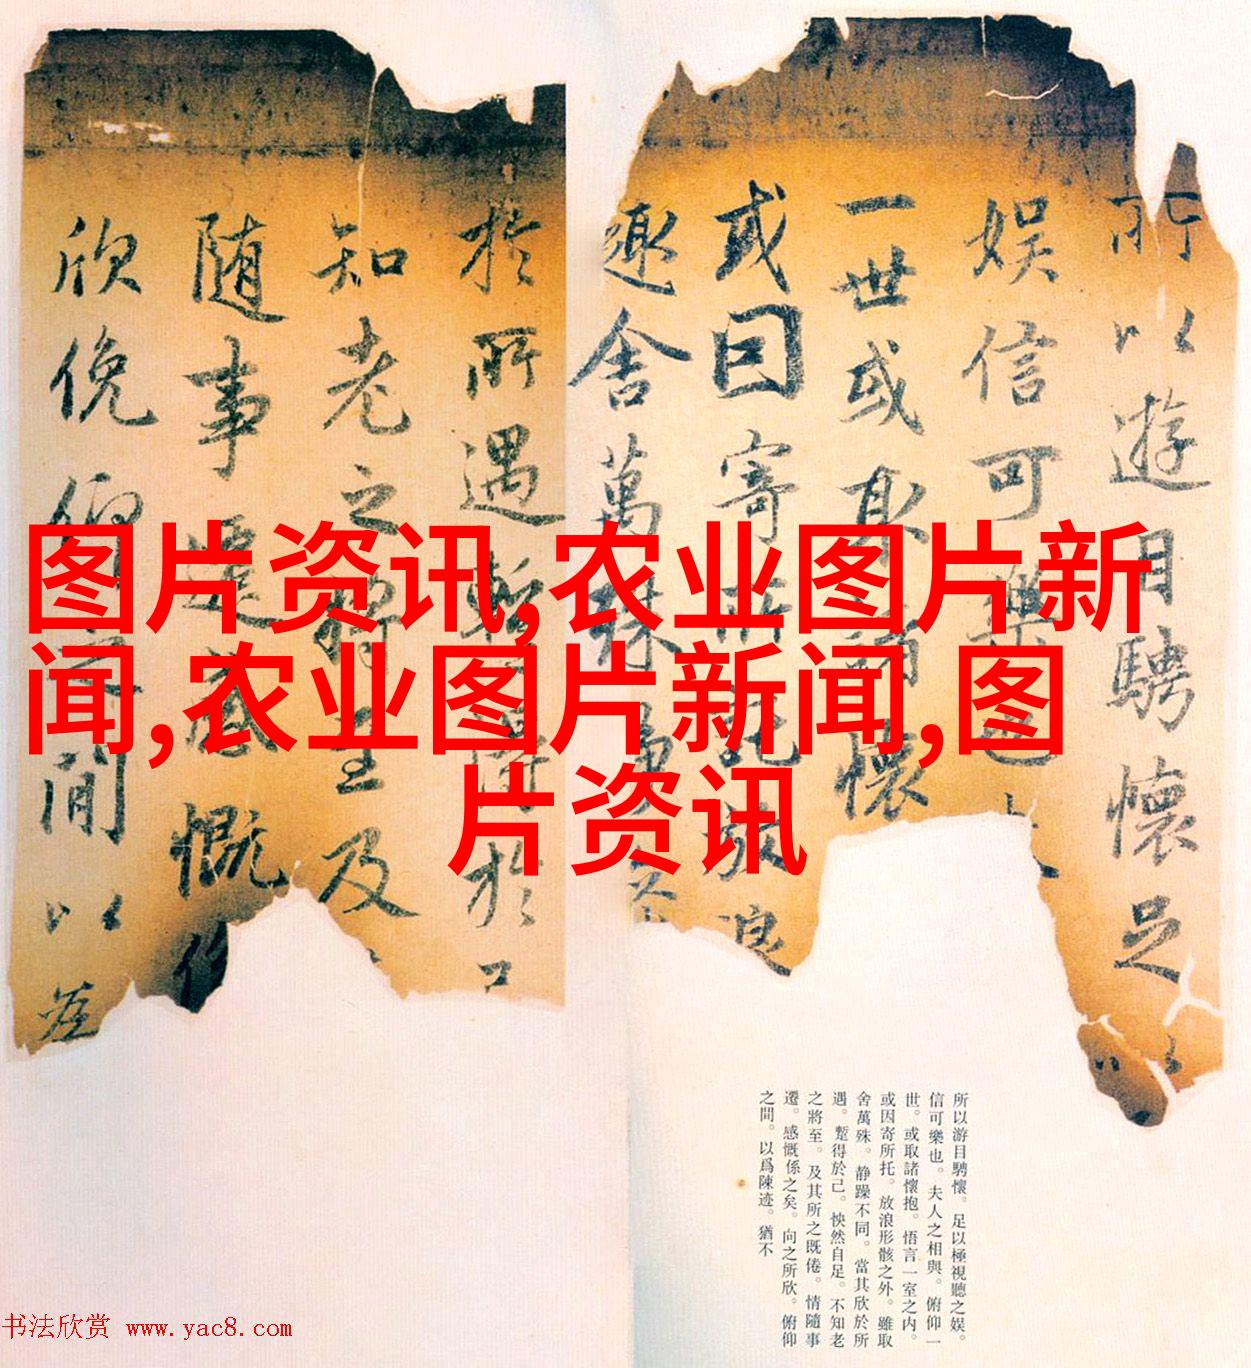 图片资讯,农业图片新
闻,农业图片新闻,图
片资讯
所以遊目騁懷足以
娱信可樂也
一世或取諸懷
或因寄所託放浪
趣舍萬殊
於所遇暫得於己
知老之將至及
随事遷感慨係
欣俛仰之間以為
所以游目騁懷。足以極視聽之娱。
信可樂也。夫人之相與。俯仰一
世。或取諸懷抱。悟言一室之内。
或因寄所托。放浪形骸之外。雖取
舍萬殊。静躁不同。當其欣於所
遇。蹔得於己。怏然自足。不知老
之將至。及其所之既倦。情隨事
遷。感慨係之矣。向之所欣。俯仰
之間。以爲陳迹。猶不
书法欣赏 www.yac8.com